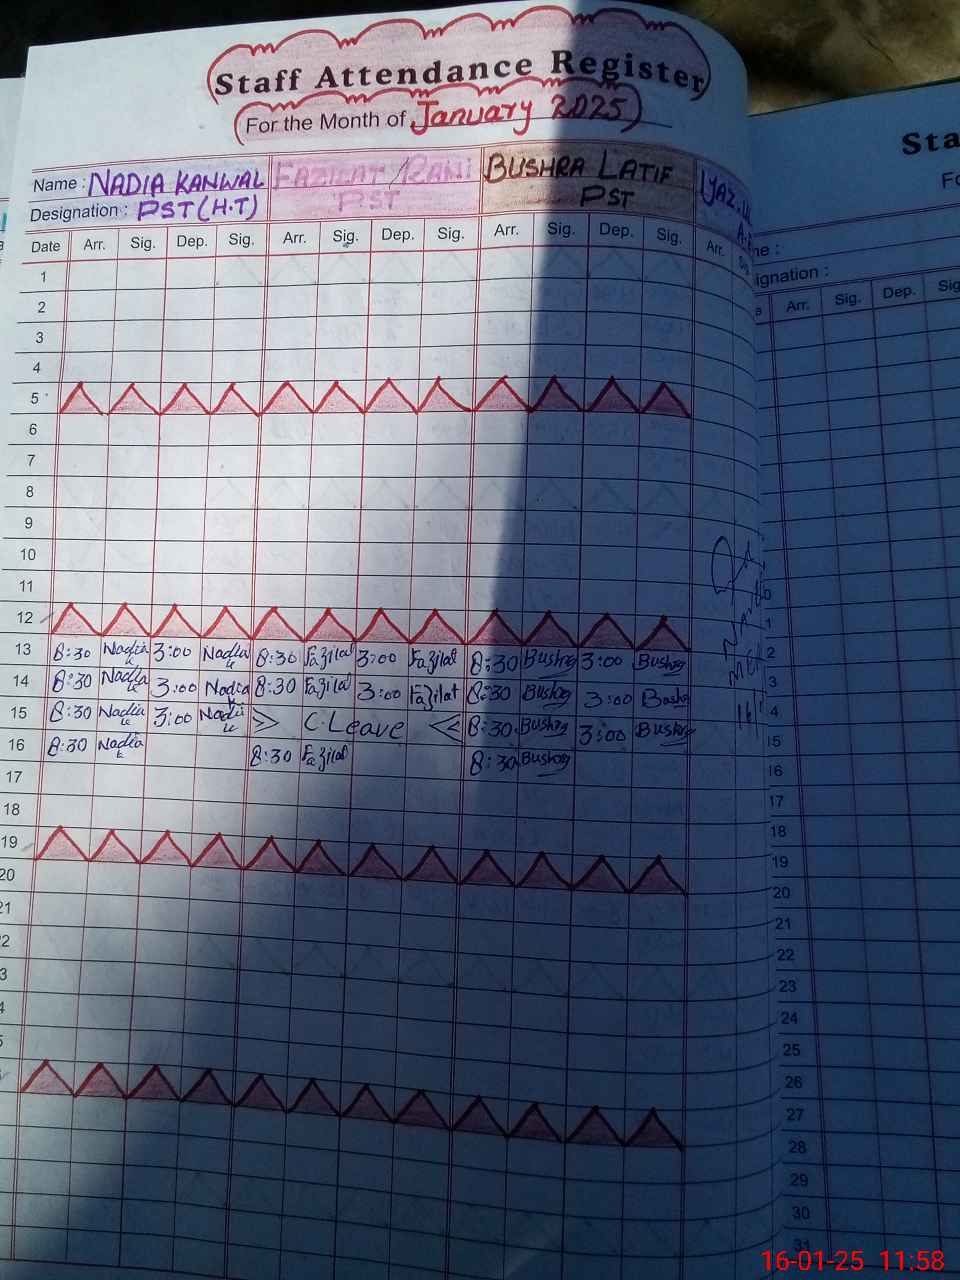 Staff Attendance Register
For the Month of January 2025
Name : NADIA KANWAL FAZILAT RANI BUSHRA LATIF
Designation : PST (H.T) PST PST
Date Arr. Sig. Dep. Sig. Arr. Sig. Dep. Sig. Arr. Sig. Dep. Sig. Arr.
1
2
3
4
5
6
7
8
9
10
11
12
13 8:30 Nadia K 3:00 Nadia K 8:30 Fazilat 3:00 Fazilat 8:30 Bushra 3:00 Bushra
14 8:30 Nadia K 3:00 Nadia K 8:30 Fazilat 3:00 Fazilat 8:30 Bushra 3:00 Bushra
15 8:30 Nadia K 3:00 Nadia K C.Leave 8:30 Bushra 3:00 Bushra
16 8:30 Nadia K 8:30 Fazilat 8:30 Bushra
17
18
19
20
21
22
3
4
5
Sta
Fo
me :
signation :
Arr. Sig. Dep. Sig
0
1
2
3
4
15
16
17
18
19
20
21
22
23
24
25
26
27
28
29
30
31
16-01-25 11:58